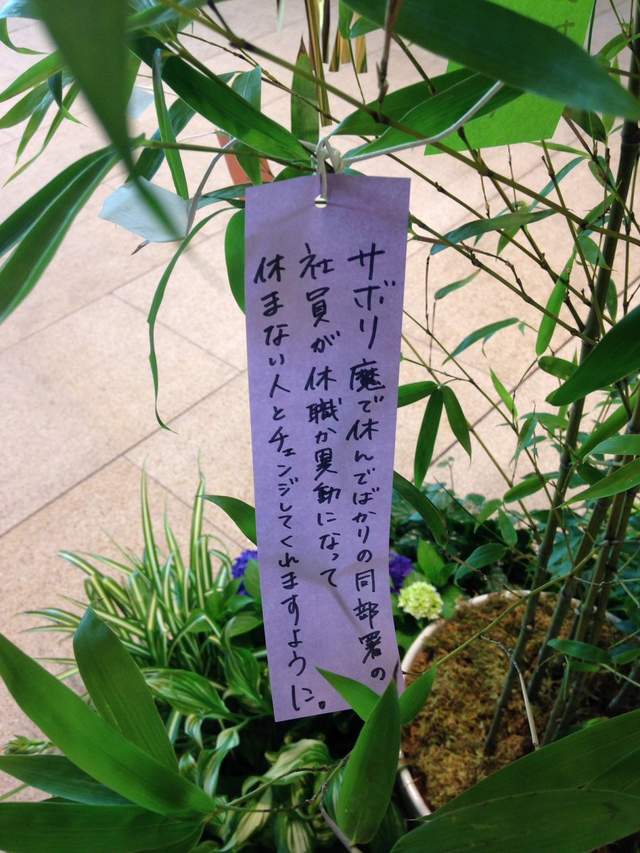 サボリ魔で休んでばかりの同部署の
社員が休職か異動になって
休まない人とチェンジしてくれますように。